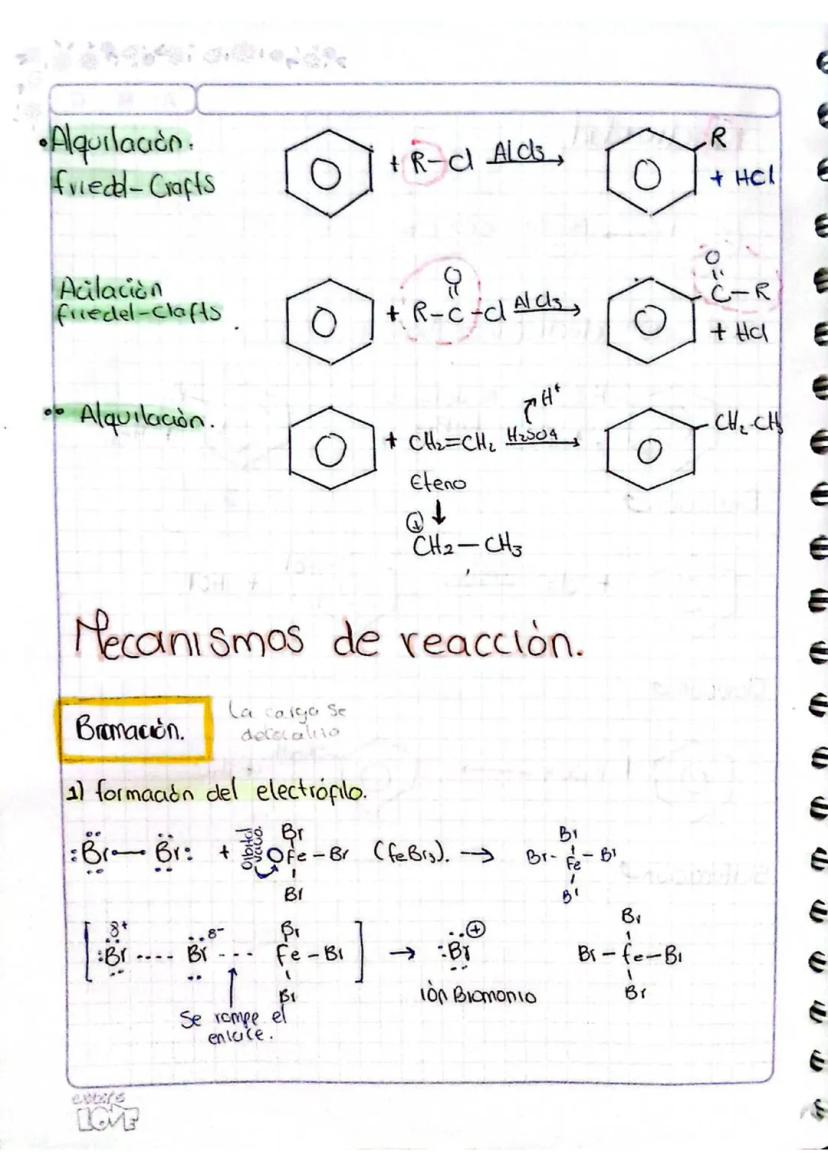 •Alquilación.
friedel-Crafts
+ R-Cl AlCl3 →
R
+ HCl
Acilación
friedel-Clafts.
O
+ R-C-Cl AlCl3 →
O
C-R
+ HCl
•• Alquilación.
H+
+ CH2=CH2 H2SO4 →
CH2-CH3
Eteno
↓
⊕
CH2-CH3
Mecanismos de reacción.
Bromación.
La carga se
1) formación del electrófilo.
:Br—Br: + orbital vacío Fe-Br (FeBr3). →
Br
Br
Br
Br-Fe-Br
Br
[ δ+ :Br ---- Br δ- --- Fe-Br ] → :Br ⊕
Br
Br
Br
Br-Fe-Br
Br
ión Bromonio
Se rompe el
enlace.
LOVE